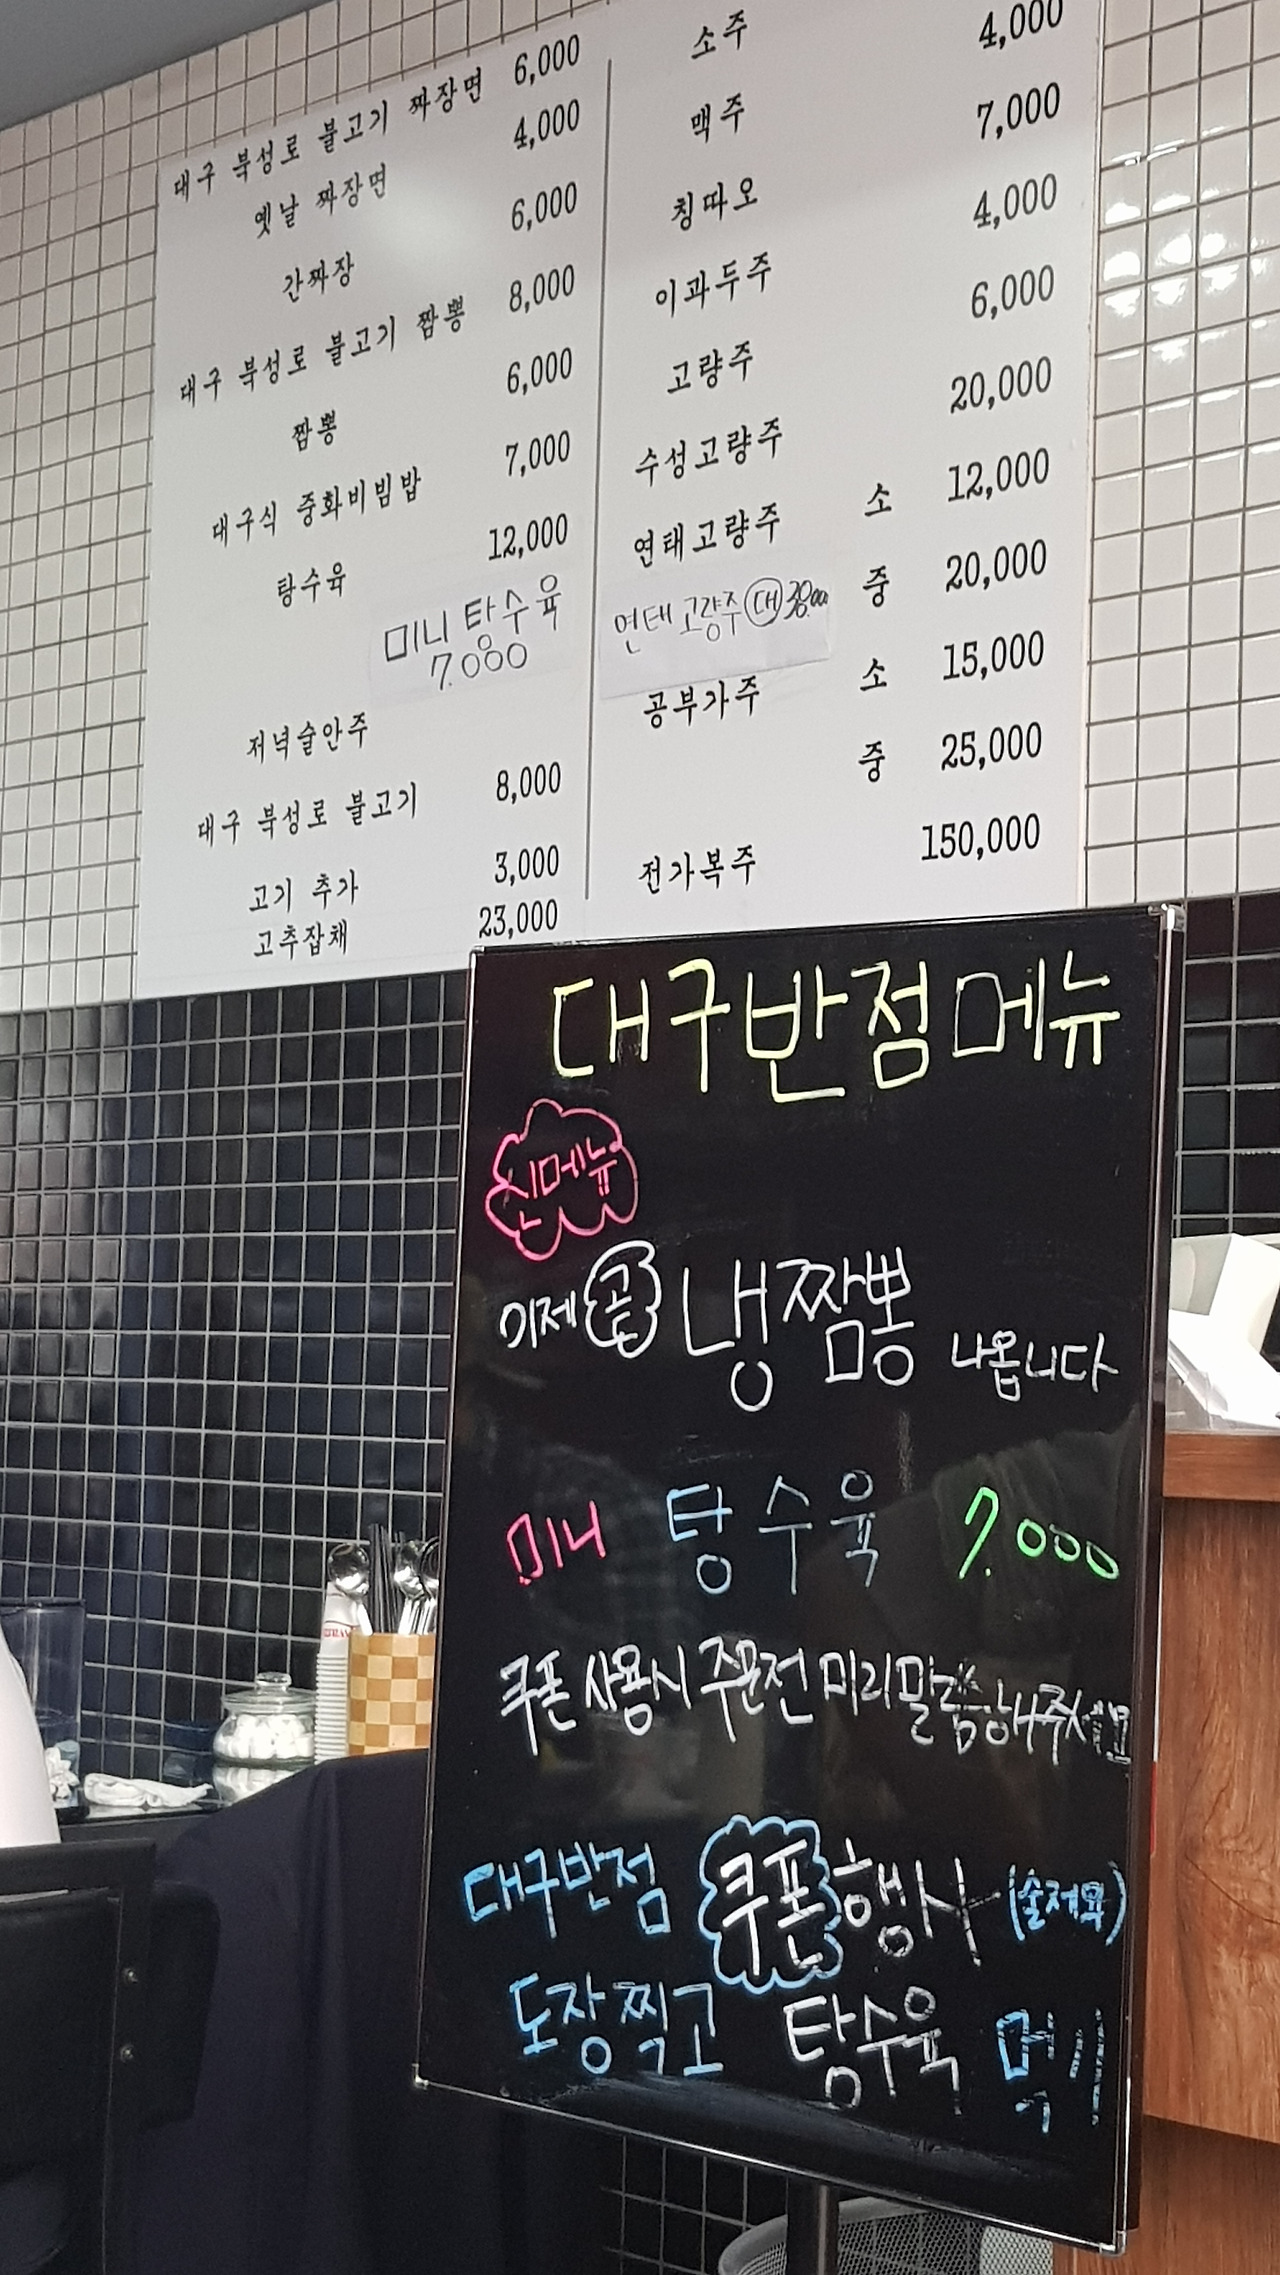 대구 북성로 불고기 짜장면 6,000
옛날 짜장면 4,000
간짜장 6,000
대구 북성로 불고기 짬뽕 8,000
짬뽕 6,000
대구식 중화비빔밥 7,000
탕수육 12,000
미니 탕수육
7.000
저녁술안주
대구 북성로 불고기 8,000
고기 추가 3,000
고추잡채 23,000
소주 4,000
맥주
7,000
칭따오
4,000
이과두주
6,000
고량주
20,000
수성고량주
소 12,000
연태고량주
중 20,000
연태고량주 대 38.000
공부가주 소 15,000
중 25,000
전가복주 150,000
대구반점메뉴
신메뉴
이제 곧 냉짬뽕 나옵니다
미니 탕수육 7.000
쿠폰 사용시 주문전 미리말씀해주세요
대구반점 쿠폰 행사 (술제외)
도장찍고 탕수육 먹기!